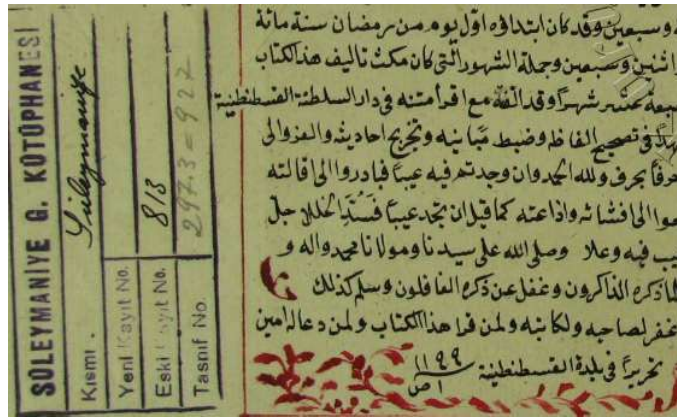 SÜLEYMANİYE G. KÜTÜPHANESİ
Kısmı . Süleymaniye
Yeni Kayıt No.
Eski Kayıt No. 813
Tasnif No. 297.3 = 927
وسبعين وقد كان ابتداؤه اول يوم من رمضان سنة مائة
اثنين وسبعين وجملة الشهور التى كان مكث تاليف هذا الكتاب
سبعة عشر شهراً وقد الفته مع اقرأ متنه فى دار السلطنة القسطنطينية
فى تصحيح الفاظه وضبط مبانيه وتخريج احاديثه والعزو الى
حرفاً بحرف ولله الحمد وان وجدتم فيه عيباً فبادروا الى اقالته
الى افشائه واذاعته كما قيل ان تجد عيباً فسُدّ الخللا جل
عيب فيه وعلا وصلى الله على سيدنا ومولانا محمد واله و
كلما ذكره الذاكرون وغفل عن ذكره الغافلون وسلم كذلك
غفر لصاحبه ولكاتبه ولمن قرا هذا الكتاب ولمن دعا له امين
تحريراً فى بلدة القسطنطينية ١١٩٩
ا ص